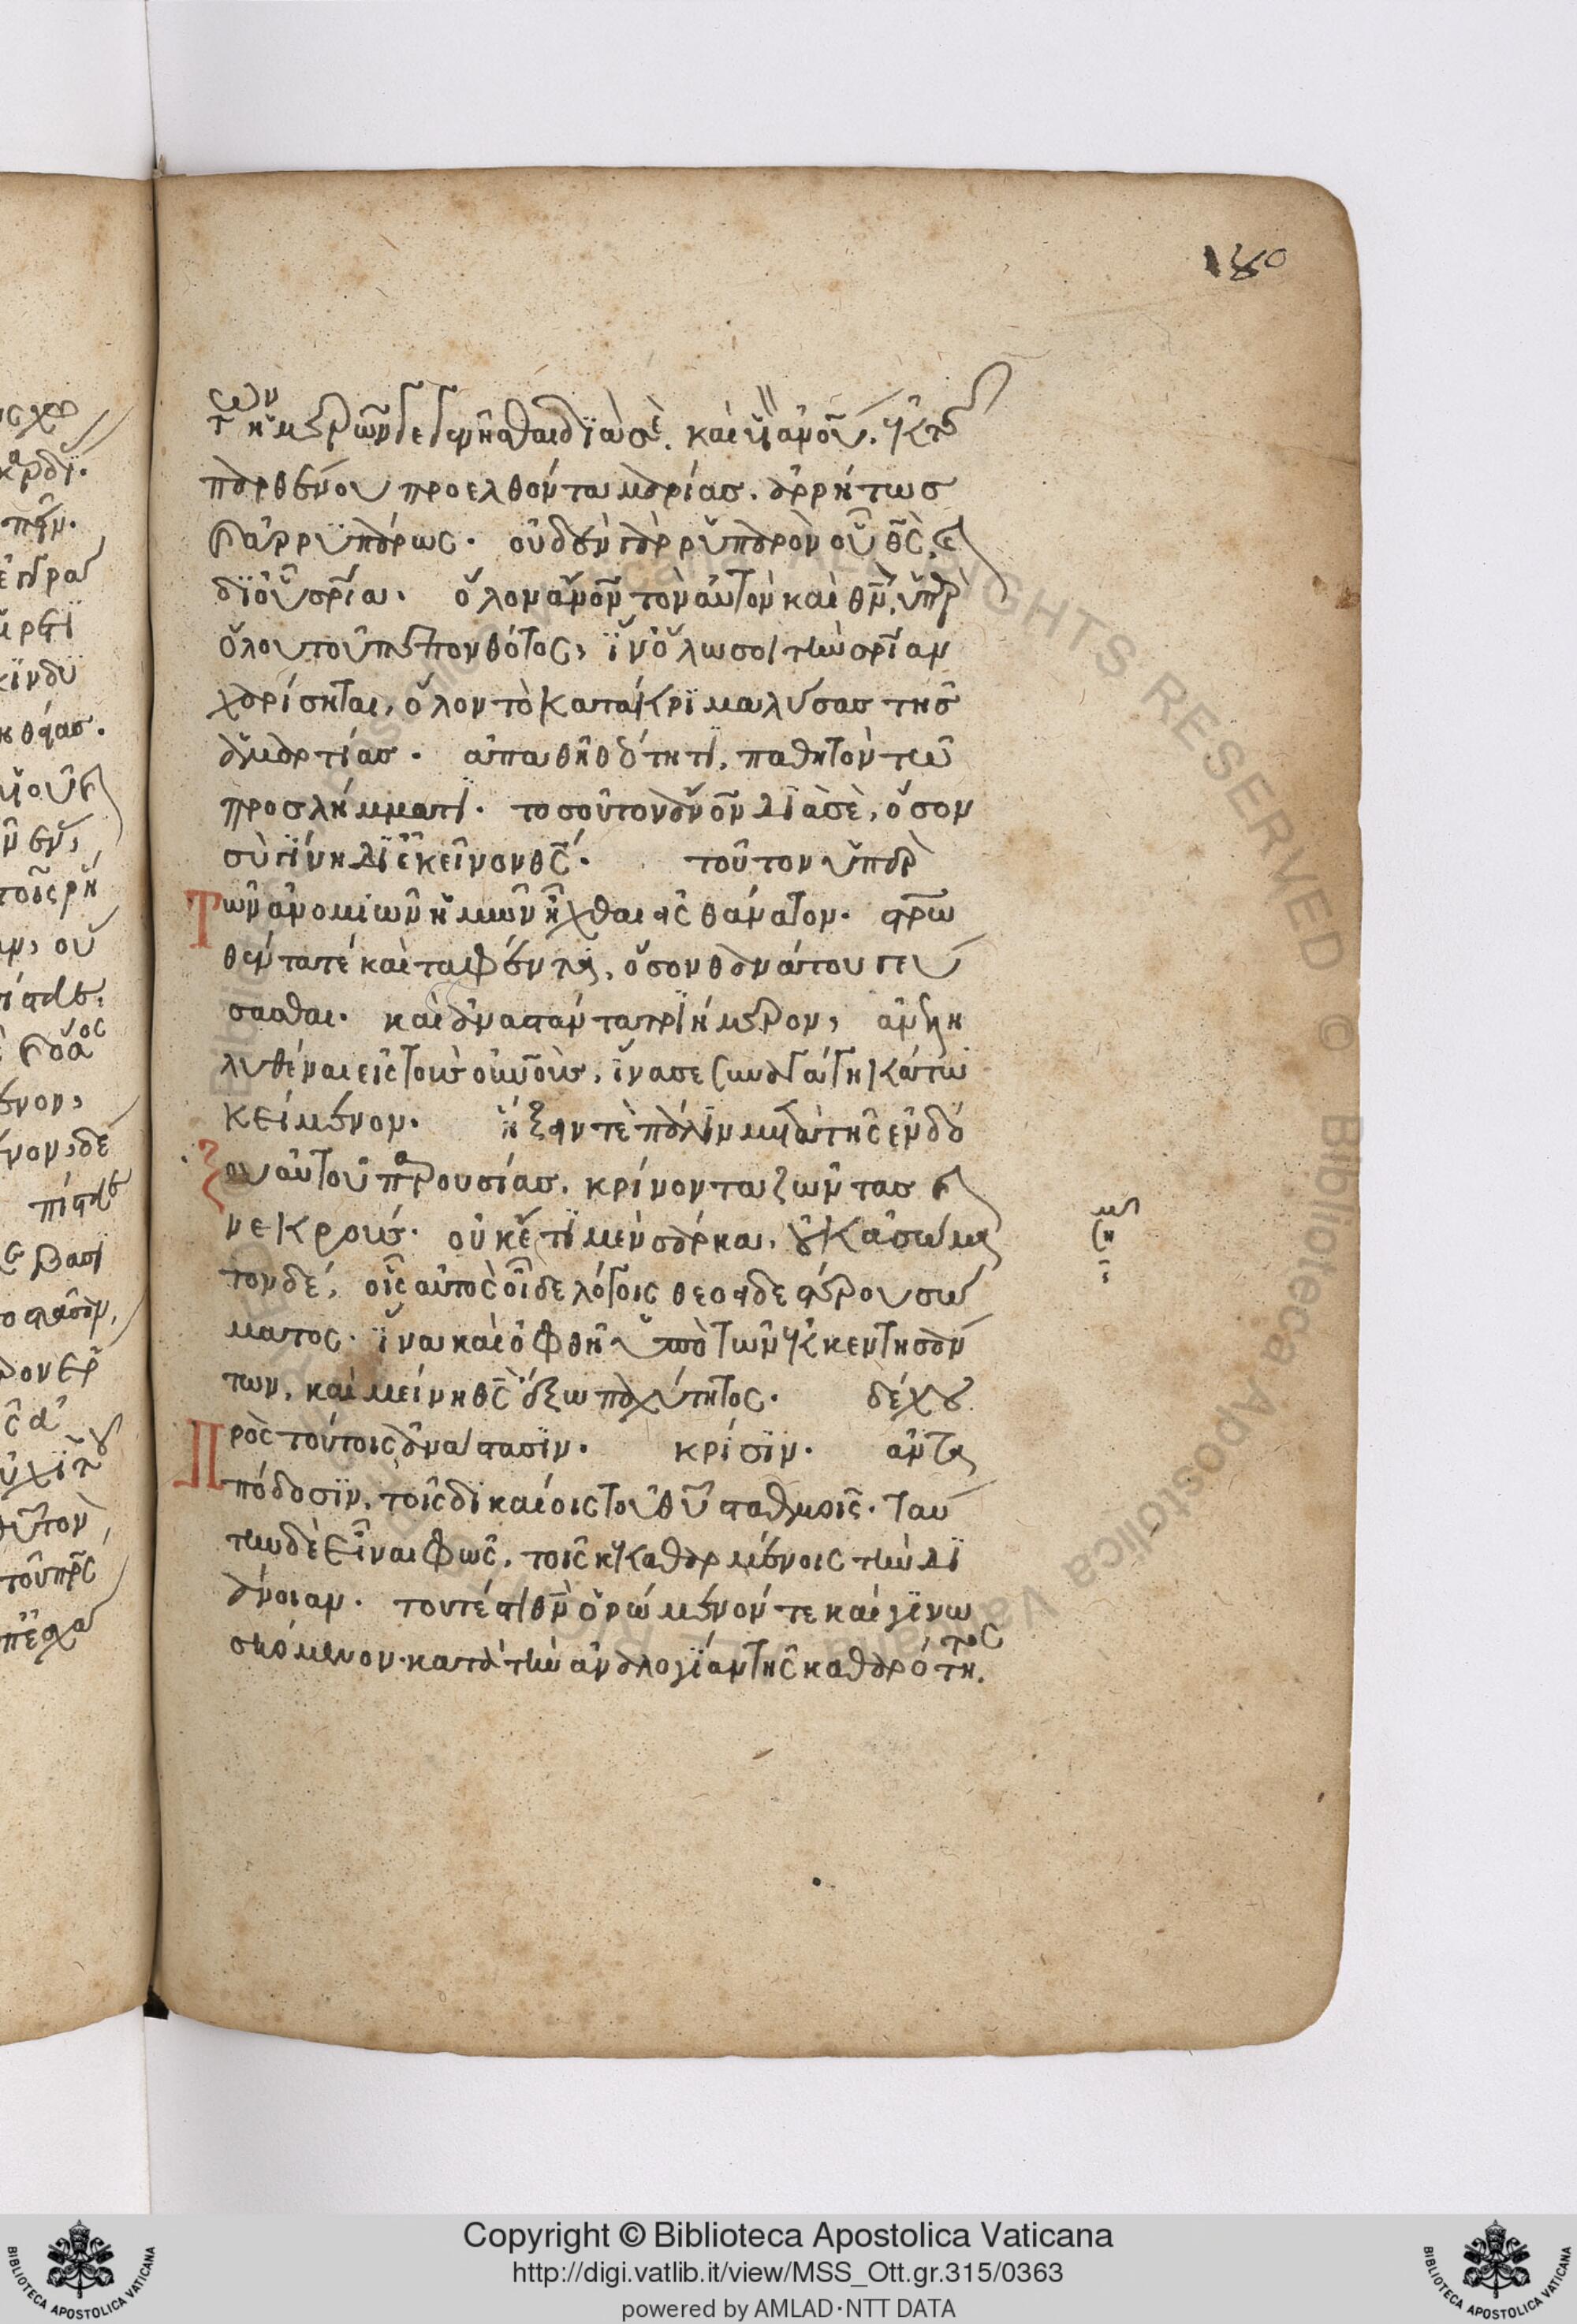 180
τῶν ἡμερῶν γεγενῆσθαι διὰ σὲ. καὶ υἱὸν ἀνου. ἐκ τῆς
παρθένου προελθόντα μαρίας. ἀρρήτως
καὶ ἀρρυπάρως. οὐδὲν γὰρ ῥυπαρὸν οὗ θς, καὶ
δι' οὗ σρία. ὅλον ἄνον τὸν αὐτὸν καὶ θν, ὑπὲρ
ὅλου τοῦ πεπονθότος, ἵν' ὅλω σοι τὴν σρίαν
χαρίσηται, ὅλον τὸ κατάκριμα λύσας τῆς
ἁμαρτίας. ἀπαθῆ θεότητι, παθητὸν τῶ
προσλήμματι. τοσοῦτον ἄνον διὰ σὲ, ὅσον
σὺ γίνη δι' ἐκεῖνον θς. τοῦτον ὑπὲρ
τῶν ἀνομιῶν ἡμῶν ἦχθαι εἰς θάνατον. στρω
θέντα τὲ καὶ ταφέντα, ὅσον θανάτου γεύ
σασθαι. καὶ ἀναστάντα τριήμερον, ἀνελη
λυθέναι εἰς τοὺς οὐνοὺς, ἵνα σε συναγάγη κάτω
κείμενον. ἥξειν τὲ πάλιν μετὰ τῆς ἐνδό
ξου αὐτοῦ παρουσίας, κρίνοντα ζῶντας καὶ
νεκρούς. οὐκ ἔτι μὲν σάρκα, οὐκ ἀσώμα
τον δέ, οἷς αὐτὸς οἶδε λόγοις θεοειδεστέρου σώ
ματος. ἵνα καὶ ὀφθῆ ὑπὸ τῶν ἐκκεντησάν
των, καὶ μείνη θς ἔξω παχύτητος. δέχου
πρὸς τούτοις ἀνάστασιν. κρίσιν. ἀντα
πόδοσιν, τοῖς δικαίοις τοῦ θυ σταθμοῖς. ταύ
την δὲ εἶναι φῶς, τοῖς κεκαθαρμένοις τὴν δι
άνοιαν. τουτέστι θν ὁρώμενόν τε καὶ γινω
σκόμενον. κατὰ τὴν ἀναλογίαν τῆς καθαρότητος.
Copyright © Biblioteca Apostolica Vaticana
http://digi.vatlib.it/view/MSS_Ott.gr.315/0363
powered by AMLAD·NTT DATA
BIBLIOTECA APOSTOLICA VATICANA
BIBLIOTECA APOSTOLICA VATICANA